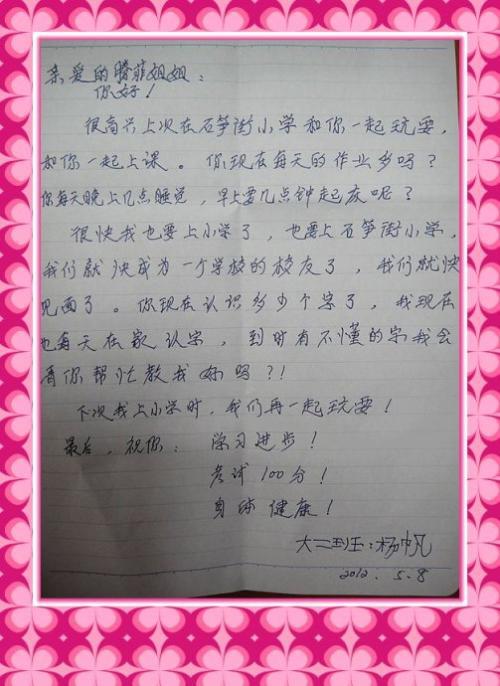 亲爱的腾菲姐姐：
你好！
很高兴上次在石笋街小学和你一起玩耍，
和你一起上课。你现在每天的作业多吗？
你每天晚上几点睡觉，早上要几点钟起床呢？
很快我也要上小学了，也要上石笋街小学，
我们就快成为一个学校的校友了，我们就快
见面了。你现在认识多少个字了，我现在
也每天在家认字，到时有不懂的字我会
看你帮忙教我好吗？！
下次我上小学时，我们再一起玩耍！
最后，祝你：学习进步！
考试100分！
身体健康！
大二班：杨帆
2012.5.8